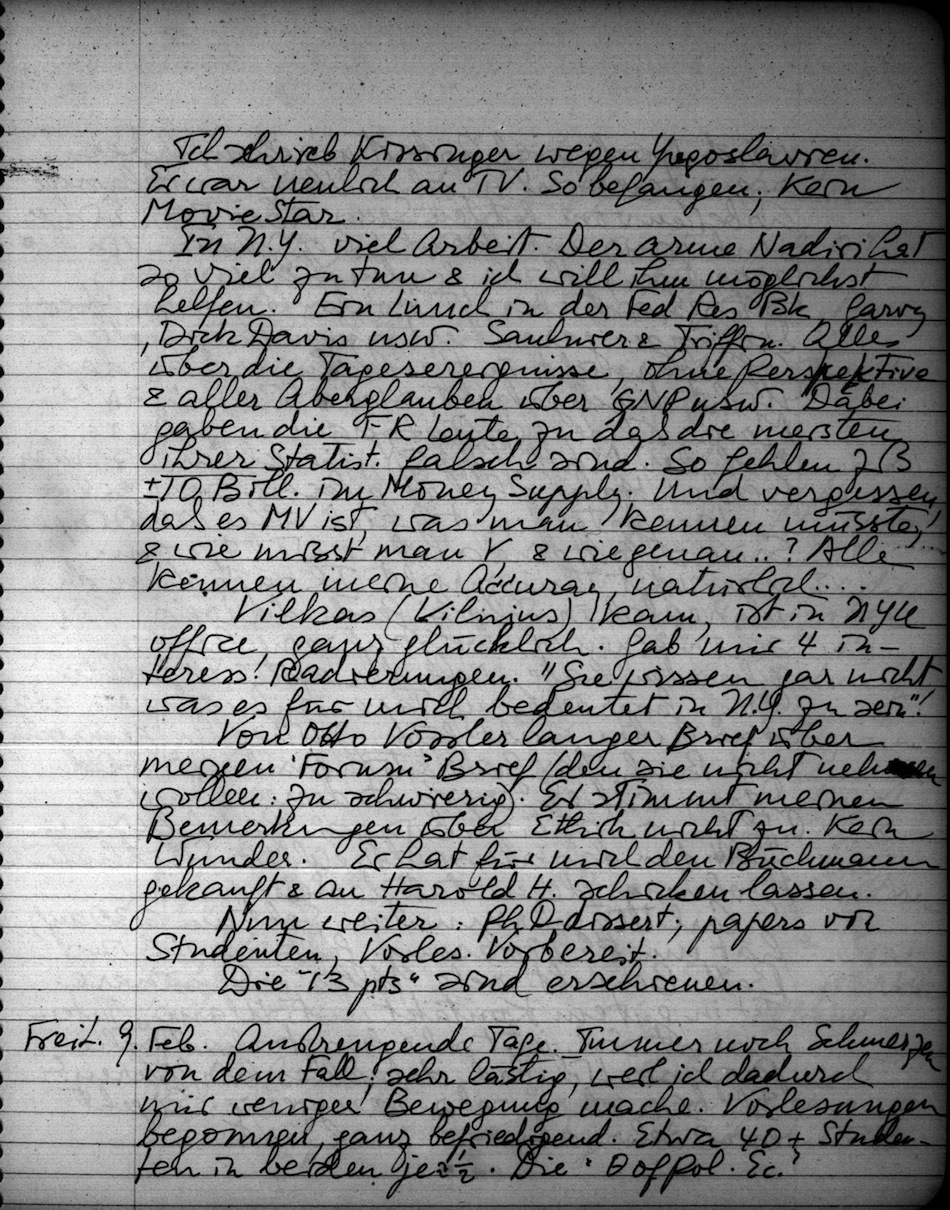 Ich schrieb Kissinger wegen Yugoslavien.
Er war neulich an TV. So befangen; kein
Movie Star.
In N.Y. viel Arbeit. Der arme Nadiri hat
so viel zu tun & ich will ihm möglichst
helfen. Ein Lunch in der Fed Res Bk, Garvy
, Dick Davis usw. Saulnier & Triffin. Alles
über die Tagesereignisse, ohne Perspektive
& aller Aberglauben über GNP usw. Dabei
gaben die FR Leute zu daß die meisten
ihrer Statist. falsch sind. So fehlen z B
±10 Bill. im Money Supply. Und vergessen,
daß es MV ist, was man kennen müsste,
& wie misst man V, & wie genau..? Alle
kennen meine Accuracy, natürlich....
Vilkas (Vilnjus) kam, ist in NYU
office, ganz glücklich. Gab mir 4 in-
teress. Radierungen. "Sie wissen gar nicht
was es für mich bedeutet in N.Y. zu sein"!
Von Otto Vossler langer Brief über
meinen 'Forum' Brief (den sie nicht nehmen
wollen: zu schwierig). Er stimmt meinen
Bemerkungen über Ethik nicht zu. Kein
Wunder. Er hat für mich den Büchmann
gekauft & an Harold H. schicken lassen.
Nun weiter: Ph.D. dissert; papers von
Studenten, Vorles. Vorbereit.
Die "13 pts" sind erschienen.
Freit. 9. Feb. Anstrengende Tage. Immer noch Schmerzen
von dem Fall, sehr lästig, weil ich dadurch
mir weniger Bewegung mache. Vorlesungen
begonnen, ganz befriedigend. Etwa 40 + Studen-
ten in beiden je 1/2. Die "θ of Pol. Ec."